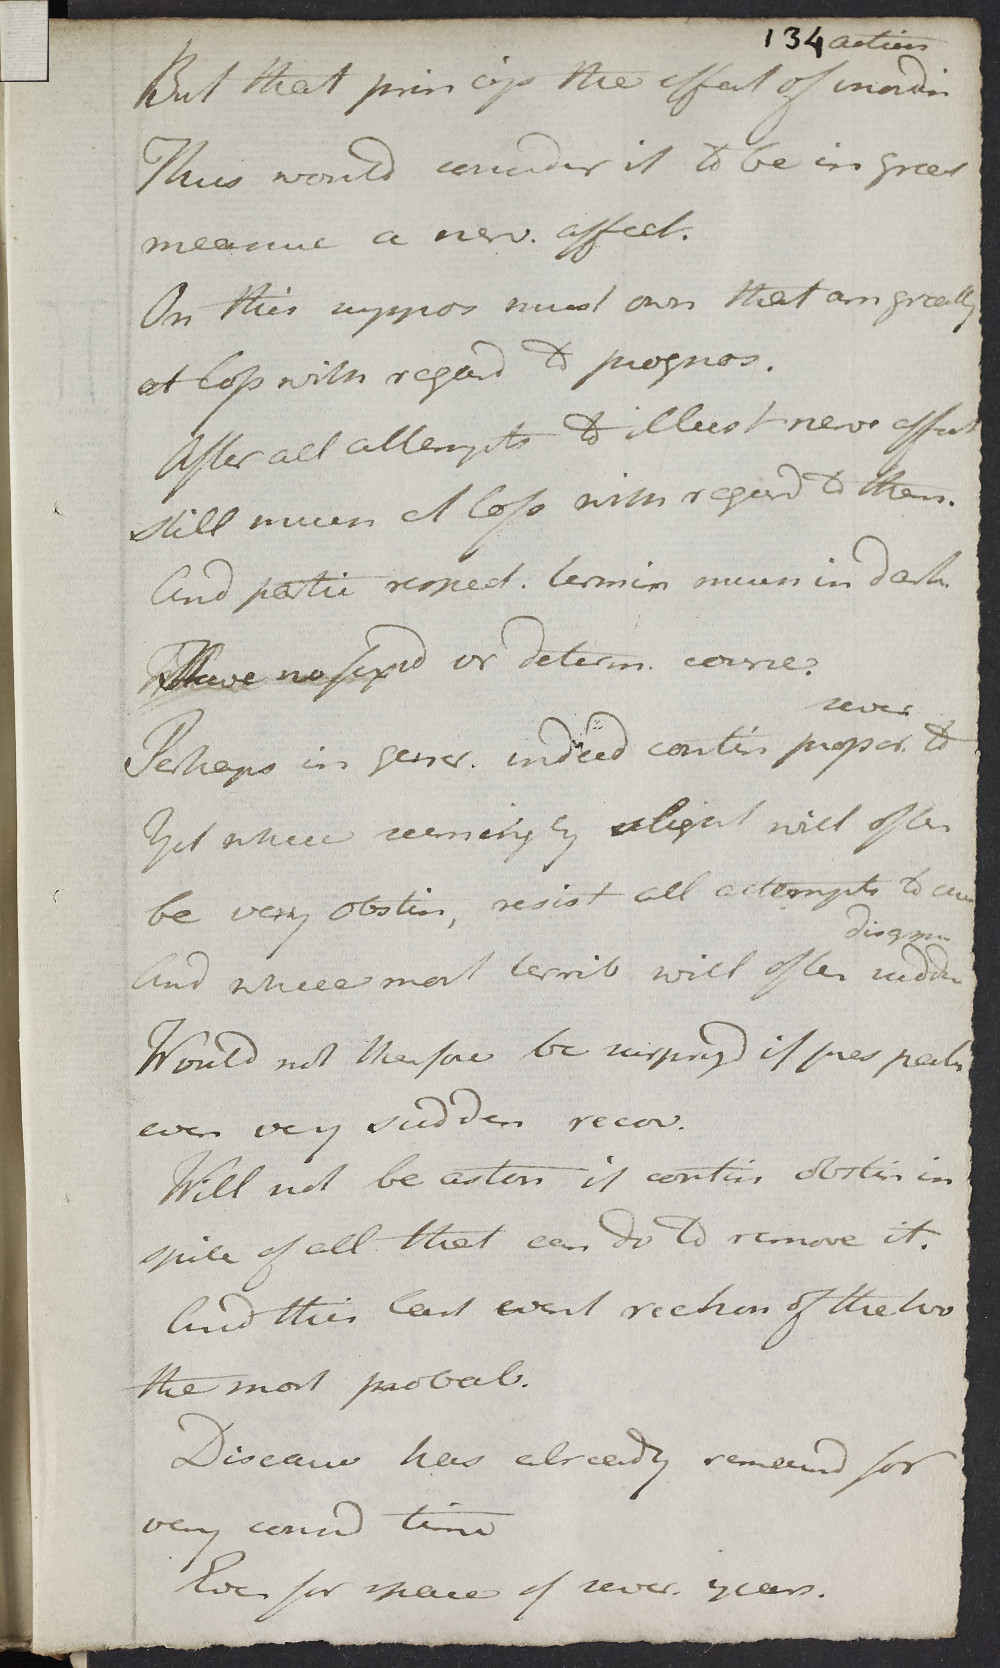 134 action
But that princip the effect of inordin
Thus would consider it to be in great
measure a nerv. affect.
On this suppos must own that am greatly
at loss with regard to prognos.
After all attempts to illust nerv affect
still much at loss with regard to them.
And partic respect. termin much in dark
Have no fixd or determ. course.
sever
Perhaps in gener. indeed contin propor. to
Yet where seemingly slight will often
be very obstin, resist all attempts to cure
disapp
And where most terrib will often sudden
Would not therefore be surprizd if pres
even very sudden recov.
Will not be aston if contin obstin in
spite of all that can do to remove it.
And this last event reckon of the two
the most probab.
Disease has already remaind for
very consid time
Even for space of sever. years.